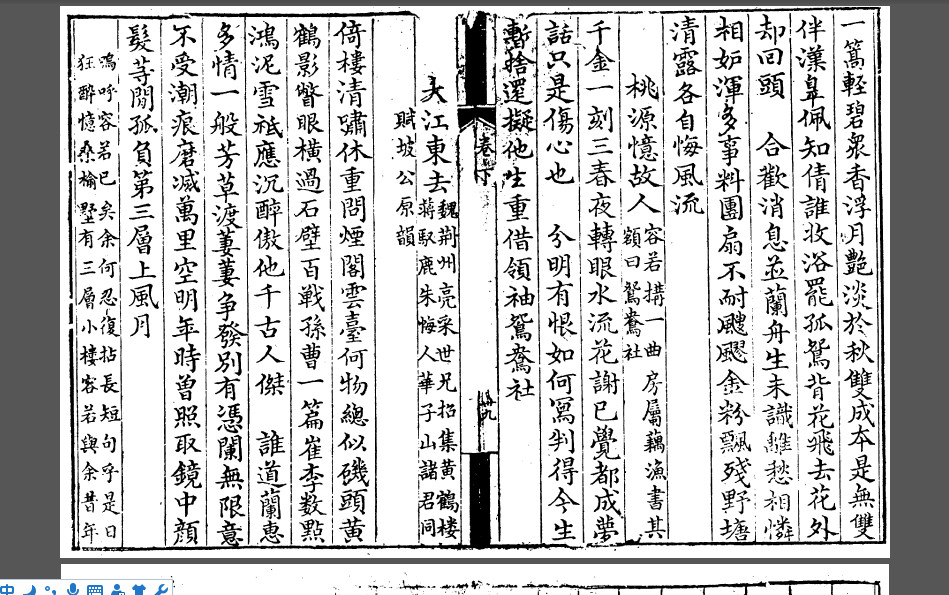 一篙輕碧眾香浮月艷淡於秋雙成本是無雙
伴漢皐佩知倩誰收浴罷孤鴛背花飛去花外
却回頭　合歡消息並蘭舟生未識離愁相憐
相妬渾多事料團扇不耐颼飀金粉飄殘野塘
清露各自悔風流
桃源憶故人
容若搆一曲房屬藕漁書其
額曰鴛鴦社
千金一刻三春夜轉眼水流花謝已覺都成夢
話只是傷心也　分明有恨如何寫判得今生
暫捨還擬他生重借領袖鴛鴦社
卷下
大江東去
魏荆州亮采世兄招集黃鶴樓
蔣馭鹿朱悔人華子山諸君同
賦坡公原韻
倚樓清嘯休重問煙閣雲臺何物總似磯頭黃
鶴影瞥眼橫過石壁百戰孫曹一篇崔李數點
鴻泥雪祗應沉醉傲他千古人傑　誰道蘭蕙
多情一般芳草渡萋萋爭發別有憑闌無限意
不受潮痕磨滅萬里空明年時曾照取鏡中顏
髮等閒孤負第三層上風月
嗚呼容若已矣余何忍復拈長短句乎是日
狂醉憶桑榆墅有三層小樓容若與余昔年
中